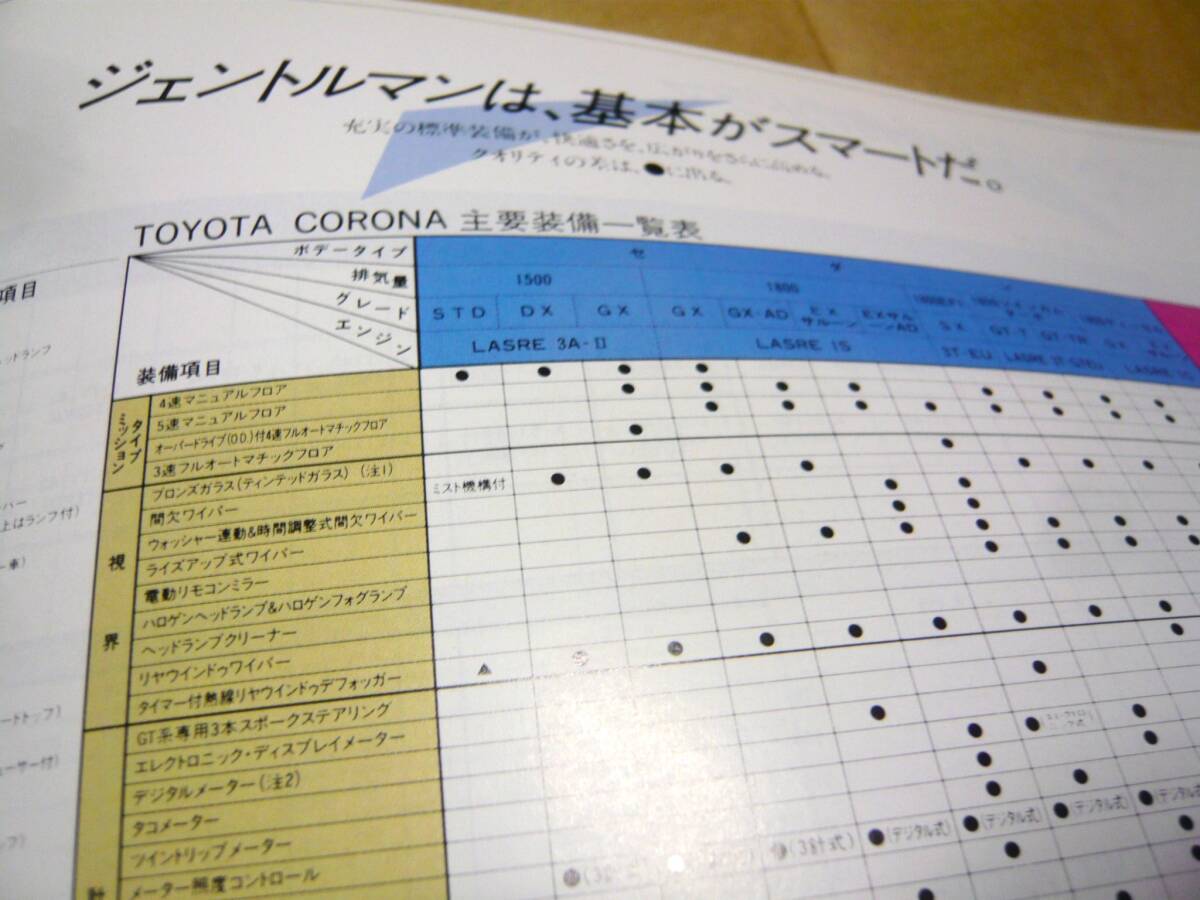 ジェントルマンは、基本がスマートだ。
充実の標準装備が、快適さを、広がりをさらに高める。
クオリティの差は、●に出る。
TOYOTA CORONA 主要装備一覧表
ボデータイプ セ ダ ン
排気量 1500 1800
グレード STD DX GX GX GX-AD EXサルーン EXサルーンAD SX GT-T GT-TR GX
エンジン LASRE 3A-II LASRE 1S 3T-EU LASRE 3T-GTEU LASRE
装備項目
ミッションタイプ
4速マニュアルフロア
5速マニュアルフロア
オーバードライブ(O.D.)付4速フルオートマチックフロア
3速フルオートマチックフロア
視界
ブロンズガラス(ティンテッドガラス)(注1)
間欠ワイパー ミスト機構付
ウォッシャー連動&時間調整式間欠ワイパー
ライズアップ式ワイパー
電動リモコンミラー
ハロゲンヘッドランプ&ハロゲンフォグランプ
ヘッドランプクリーナー
リヤウインドゥワイパー
タイマー付熱線リヤウインドゥデフォッガー
計
GT系専用3本スポークステアリング
エレクトロニック・ディスプレイメーター
デジタルメーター(注2)
タコメーター
ツイントリップメーター
メーター照度コントロール
(3針式) (デジタル式) (デジタル式) (デジタル式) (デジタル式)
項目
ッドランプ
パー
上はランプ付)
車)
ートトップ)
ューサー付)